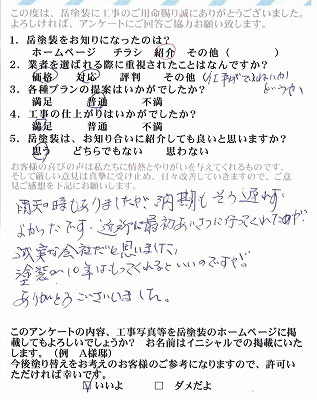 この度は、岳塗装に工事のご用命賜り誠にありがとうございました。
よろしければ、アンケートにご回答ご協力お願い致します。
1. 岳塗装をお知りになったのは？
ホームページ　チラシ　紹介　その他（　　　）
2. 業者を選ばれる際に重視されたことはなんですか？
価格　対応　評判　その他（
3. 各種プランの提案はいかがでしたか？
満足　普通　不満
4. 工事の仕上がりはいかがでしたか？
満足　普通　不満
5. 岳塗装は、お知り合いに紹介しても良いと思いますか？
思う　どちらでもない　思わない
お客様の喜びの声は私たちに情熱とやりがいを与えてくれるものです。
そして厳しい意見は真摯に受け止め、日々改善していきますので、ご意
見ご感想を下記にお願いします。
雨天の時もありましたが、納期もそう遅れず
よかったです。近所に最初あいさつに行ってくれたのが
誠実な会社だと思いました。
塗装が10年はもってくれるといいのですが。
ありがとうございました。
このアンケートの内容、工事写真等を岳塗装のホームページに掲
載してもよろしいでしょうか？　お名前はイニシャルでの掲載にいた
します。（例　A様邸）
今後塗り替えをお考えのお客様のご参考になりますので、許可い
ただければ幸いです。
☑ いいよ　□ ダメだよ